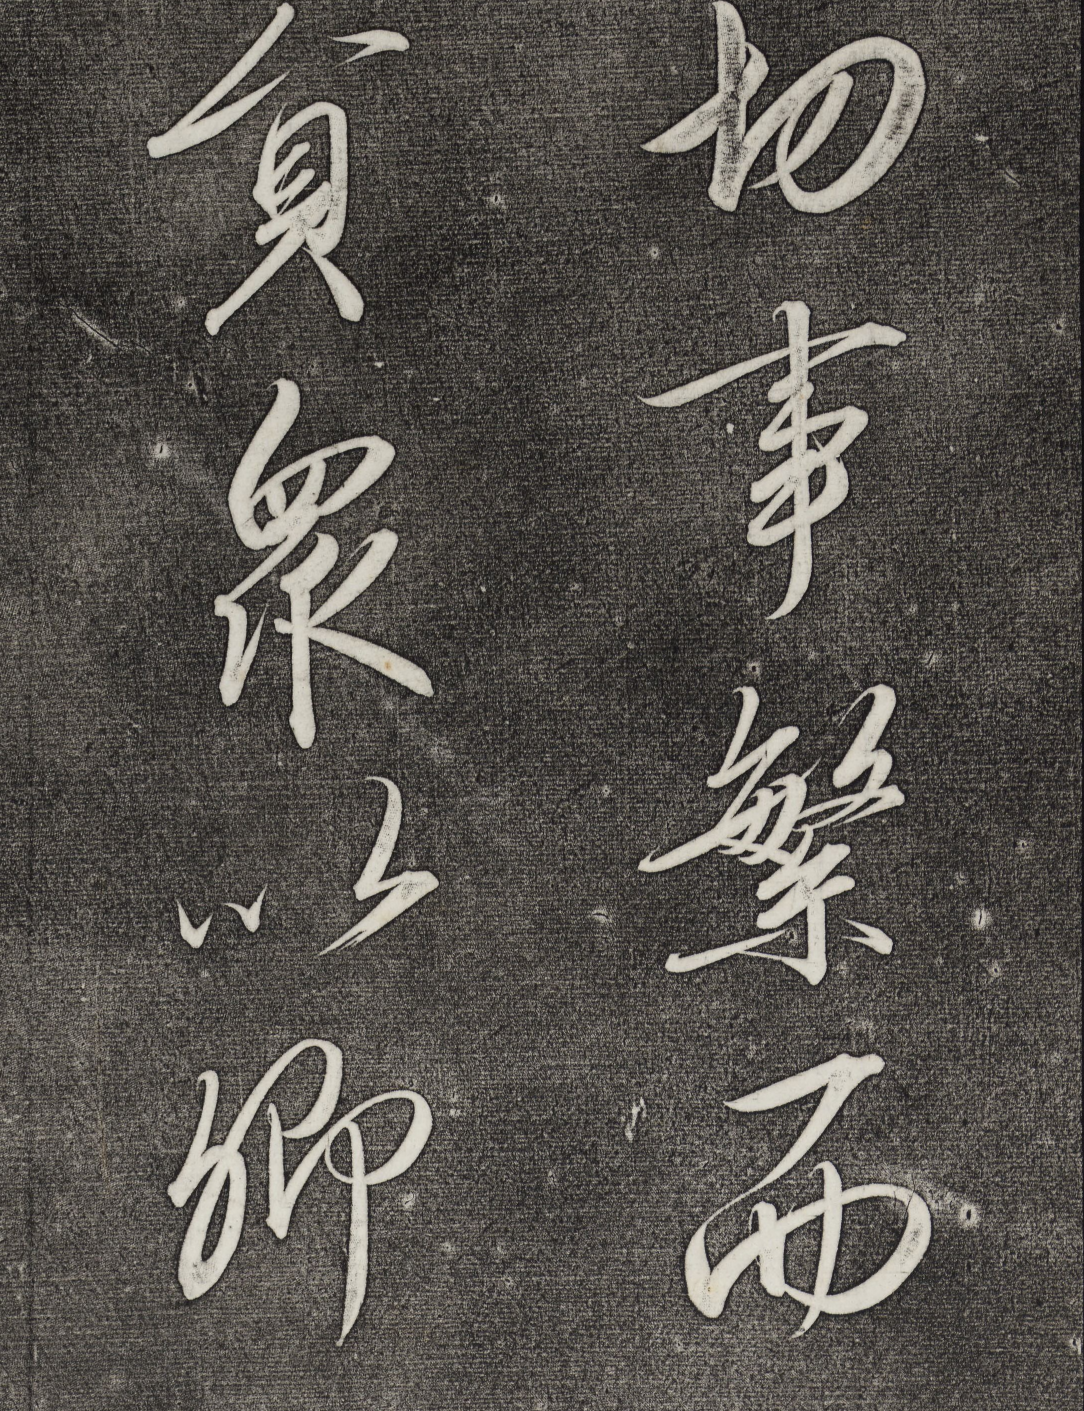 切事繁而
貟衆以卿